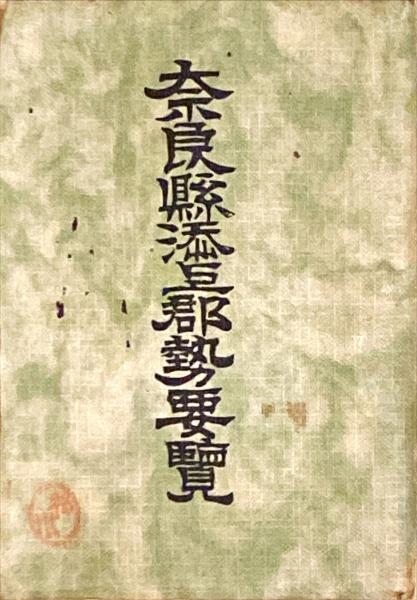 奈良縣添上郡勢要覽